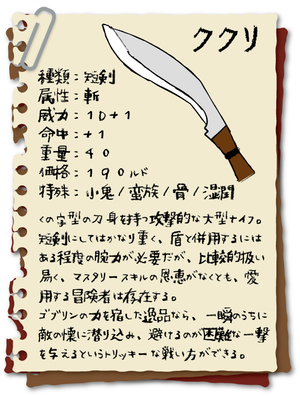 ククリ
種類：短剣
属性：斬
威力：1D+1
命中：+1
重量：40
価格：190ルド
特殊：小鬼/蛮族/骨/湿潤
くの字型の刀身を持つ攻撃的な大型ナイフ。
短剣にしてはかなり重く、盾と併用するには
ある程度の腕力が必要だが、比較的扱い
易く、マスタリースキルの恩恵がなくとも、愛
用する冒険者は存在する。
ゴブリンの力を宿した逸品なら、一瞬のうちに
敵の懐に潜り込み、避けるのが困難な一撃
を与えるというトリッキーな戦い方ができる。